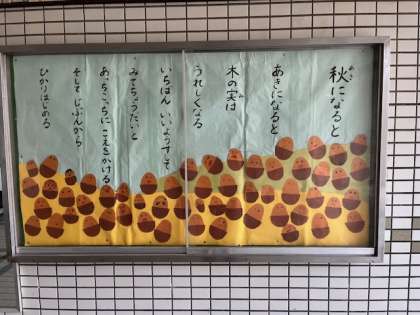 秋になると
あきになると
木の実は
うれしくなる
いちばん いいようすで
みてちょうだいと
あっちこっちに こえをかける
そして じぶんから
ひかりはじめる